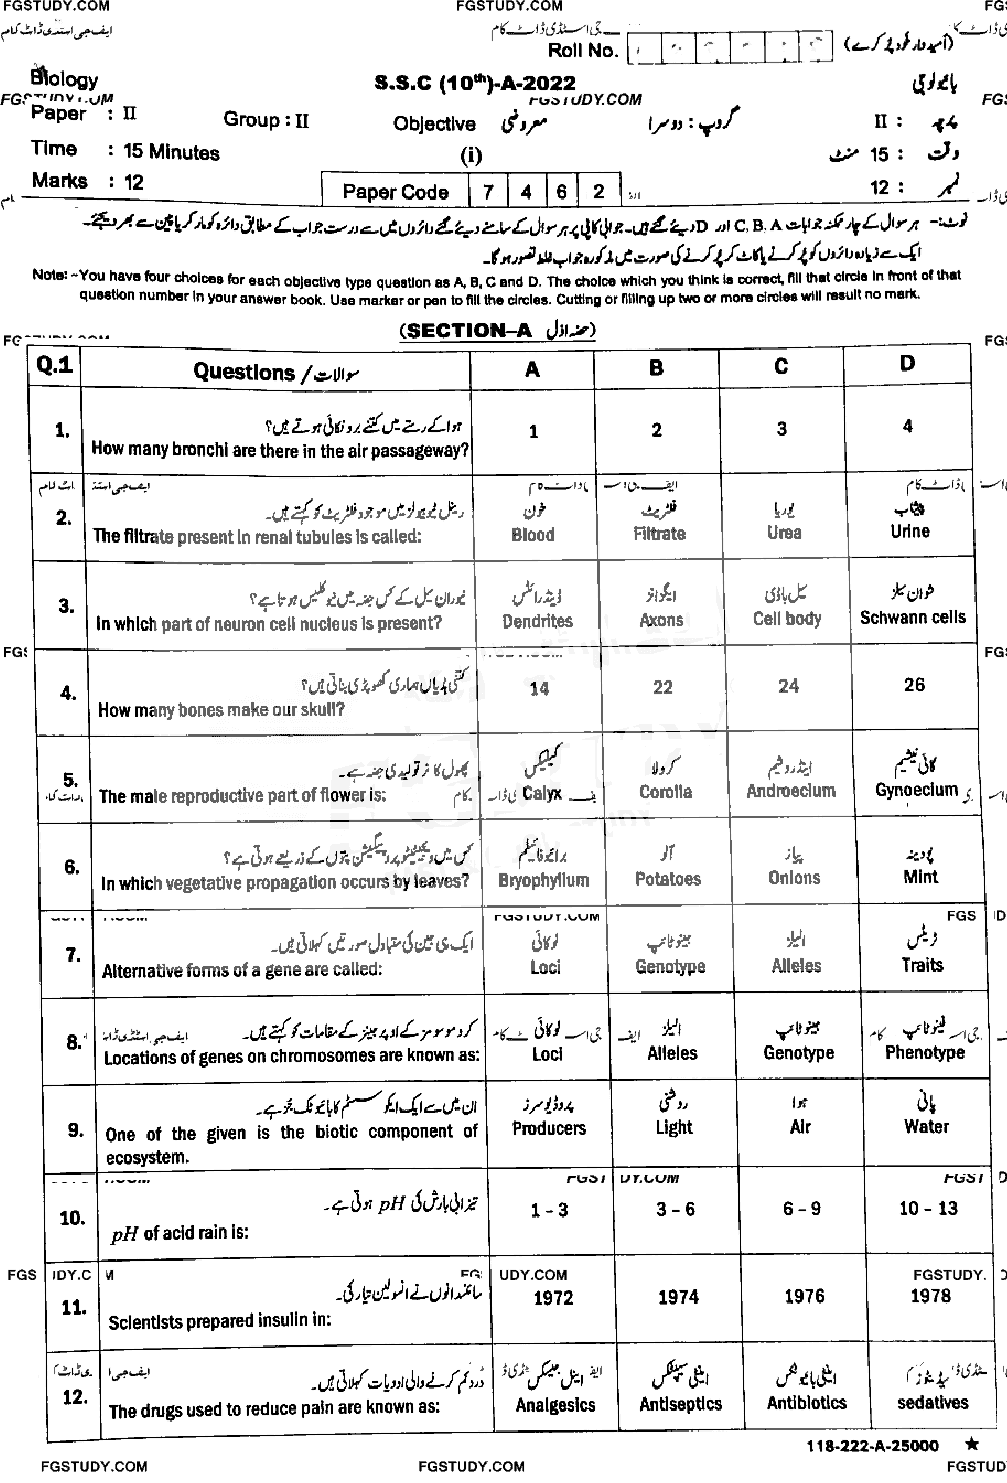 FGSTUDY.COM FGSTUDY.COM FGS
ایف جی اسٹڈی ڈاٹ کام
Roll No. (امیدوار خود پُر کرے)
Biology S.S.C (10th)-A-2022 بائیولوجی
FGSTUDY.COM
Paper : II Group : II Objective معروضی گروپ : دوسرا پرچہ : II
Time : 15 Minutes (i) وقت : 15 منٹ
Marks : 12 Paper Code 7 4 6 2 نمبر : 12
نوٹ:- ہر سوال کے چار ممکنہ جوابات C, B, A اور D دیئے گئے ہیں۔ جوابی کاپی پر ہر سوال کے سامنے دیئے گئے دائروں میں سے درست جواب کے مطابق دائرہ کو مارکر یا پین سے بھر دیجئے۔
ایک سے زیادہ دائروں کو پُر کرنے یا کاٹ کر پُر کرنے کی صورت میں مذکورہ جواب غلط تصور ہوگا۔
Note: -You have four choices for each objective type question as A, B, C and D. The choice which you think is correct, fill that circle in front of that
question number in your answer book. Use marker or pen to fill the circles. Cutting or filling up two or more circles will result no mark.
(SECTION-A حصہ اوّل)
Q.1 Questions / سوالات A B C D
ہوا کے رستے میں کتنے برونکائی ہوتے ہیں؟
1. How many bronchi are there in the air passageway? 1 2 3 4
رینل ٹیوبولز میں موجود فلٹریٹ کو کہتے ہیں۔ خون فلٹریٹ یوریا پیشاب
2. The filtrate present in renal tubules is called: Blood Filtrate Urea Urine
نیوران سیل کے کس حصہ میں نیوکلیس ہوتا ہے؟ ڈینڈرائٹس ایگزانز سیل باڈی شوان سیلز
3. In which part of neuron cell nucleus is present? Dendrites Axons Cell body Schwann cells
کتنی ہڈیاں ہماری کھوپڑی بناتی ہیں؟
4. How many bones make our skull? 14 22 24 26
پھول کا نر تولیدی حصہ ہے۔ کیلیکس کرولا اینڈروشیم گائی نیشیم
5. The male reproductive part of flower is: Calyx Corolla Androecium Gynoecium
کس میں ویجیٹیٹو پروپیگیشن پتوں کے ذریعے ہوتی ہے؟ برائیوفائیلم آلو پیاز پودینہ
6. In which vegetative propagation occurs by leaves? Bryophyllum Potatoes Onions Mint
FGSTUDY.COM FGS
ایک ہی جین کی متبادل صورتیں کہلاتی ہیں۔ لوکائی جینوٹائپ الیلز ٹریٹس
7. Alternative forms of a gene are called: Loci Genotype Alleles Traits
کروموسومز کے اوپر جینز کے مقامات کو کہتے ہیں۔ لوکائی الیلز جینوٹائپ فینوٹائپ
8. Locations of genes on chromosomes are known as: Loci Alleles Genotype Phenotype
ان میں سے ایک ایکو سسٹم کا بائیوٹک جُز ہے۔ پروڈیوسرز روشنی ہوا پانی
9. One of the given is the biotic component of Producers Light Air Water
ecosystem.
تیزابی بارش کی pH ہوتی ہے۔
10. pH of acid rain is: 1 - 3 3 - 6 6 - 9 10 - 13
FGS FGSTUDY.
سائنسدانوں نے انسولین تیار کی۔
11. Scientists prepared insulin in: 1972 1974 1976 1978
درد کم کرنے والی ادویات کہلاتی ہیں۔ اینل جیسکس اینٹی سپٹکس اینٹی بائیوٹکس سیڈیٹوز
12. The drugs used to reduce pain are known as: Analgesics Antiseptics Antibiotics sedatives
118-222-A-25000 ★
FGSTUDY.COM FGSTUDY.COM FGSTUD